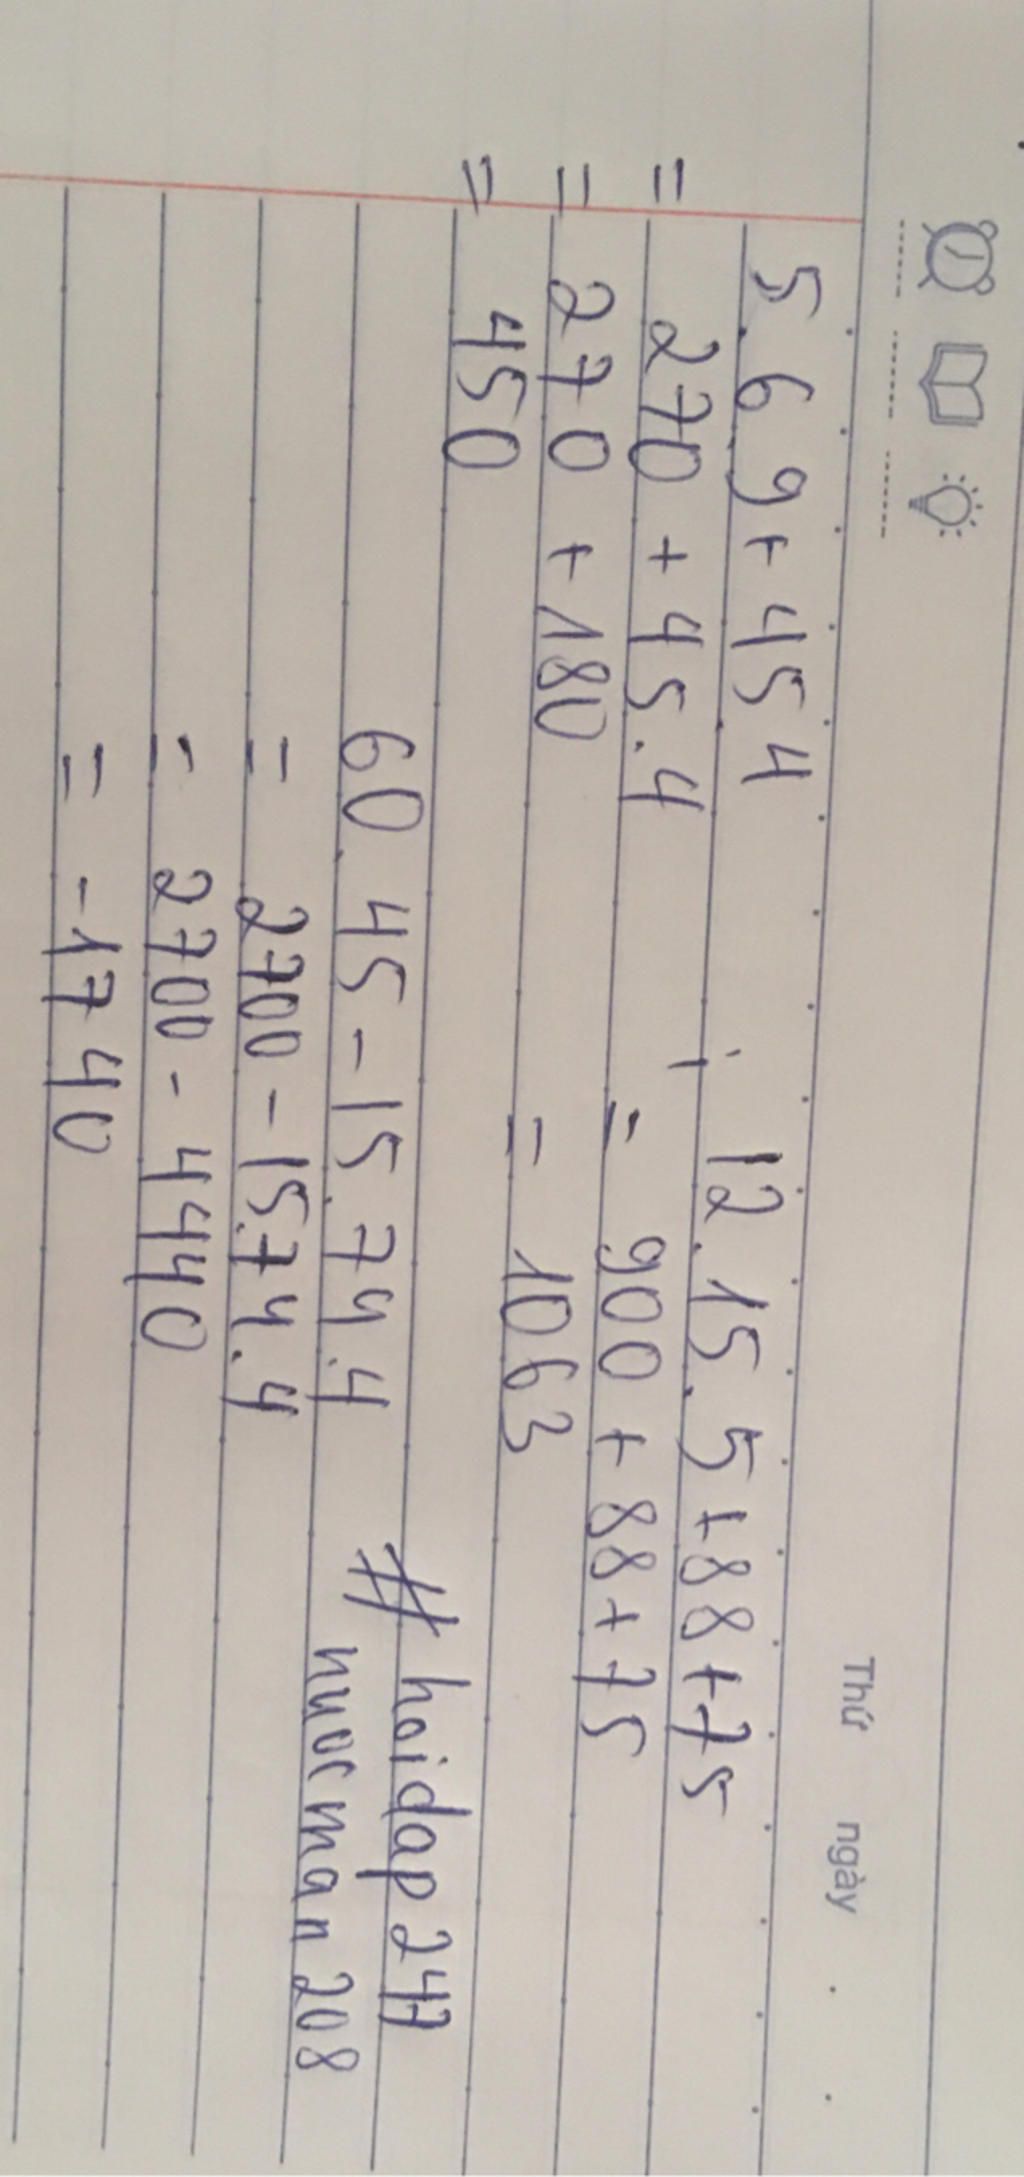 Thứ ngày . .
5.6.9+45.4
= 270 + 45.4
= 270 + 180
= 450
12.15.5+88+75
= 900 + 88+75
= 1063
60.45-15.74.4
= 2700-15.74.4
= 2700 - 4440
= -1740
# hoidap247
nuocman208